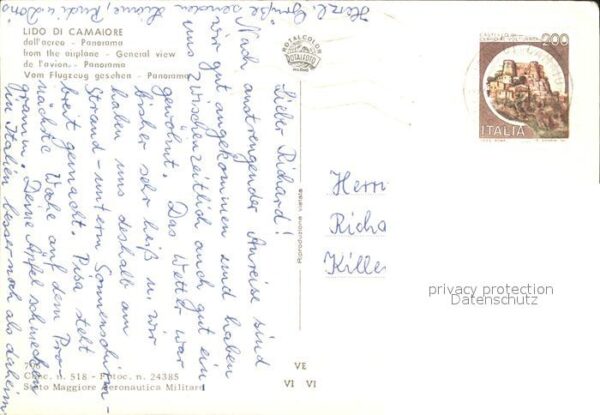 LIDO DI CAMAIORE
dall'aereo - Panorama
from the airplane - General view
de l'avion - Panorama
Vom Flugzeug gesehen - Panorama
ROTALCOLOR
ROTALFOTO
MILANO
200
ITALIA
Lieber Richard!
Nach anstrengender Anreise sind
wir gut angekommen und haben
uns zwischenzeitlich auch gut ein
gewöhnt. Das Wetter war
bisher sehr heiß u. wir
haben uns deshalb am
Strand - unterm Sonnenschirm -
breit gemacht. Pisa steht
nächste Woche auf dem Pro-
gramm. Deine Äpfel schmecken
in Italien besser noch als daheim.
Herzl. Grüße senden
Riproduzione vietata
Herrn
Richa
Killer
privacy protection
Datenschutz
Conc. n. 518 - Fotoc. n. 24385
Stato Maggiore Aeronautica Militare
VE
VI VI